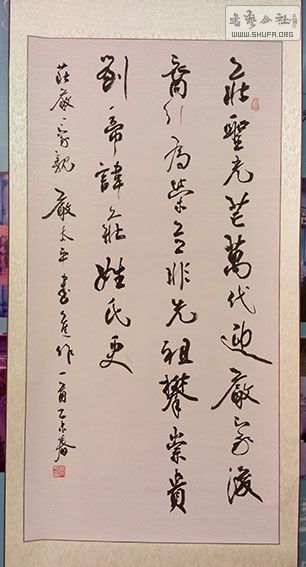 書藝公社
WWW.SHUFA.ORG
莊聖光芒萬代迎嚴家後
裔引為榮並非先祖攀崇貴
劉帝諱莊姓氏更
莊嚴一家親 嚴太平書作一首乙未春